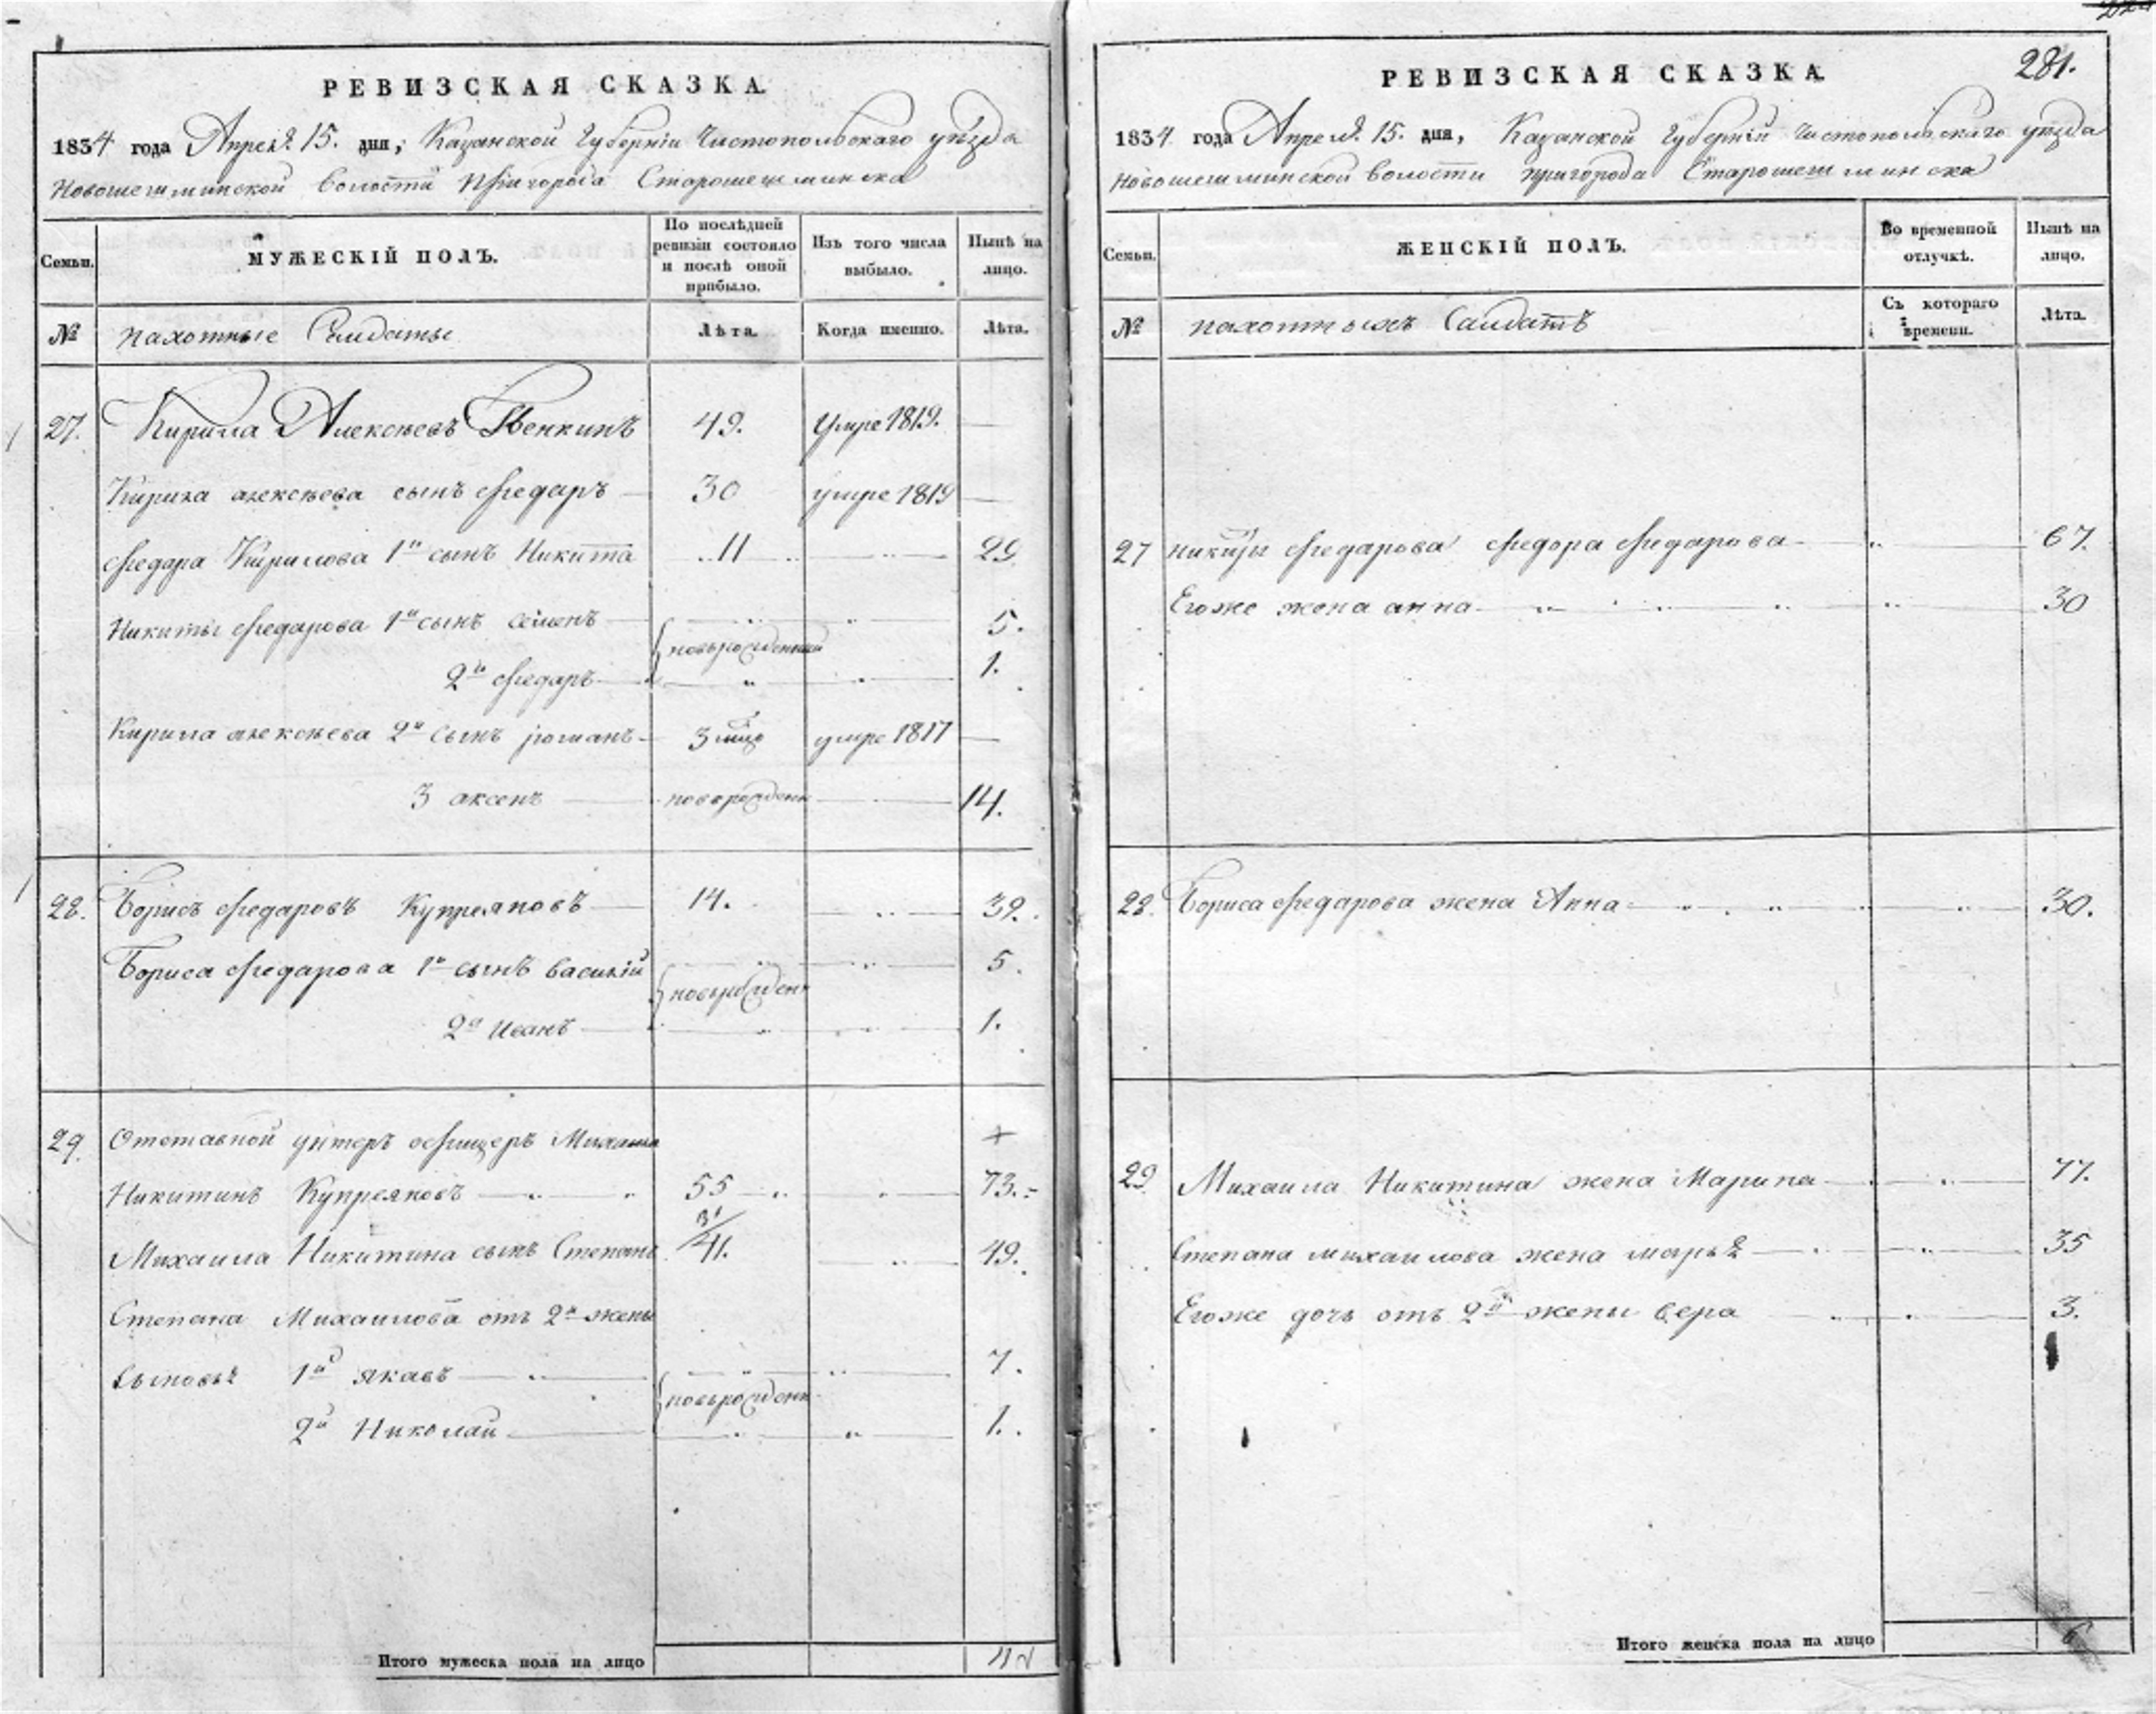 РЕВИЗСКАЯ СКАЗКА.
1834 года Апреля 15. дня, Казанской Губерніи Чистопольскаго уѣзда
Новошешминской волости Пригорода Старошешминска
Семьи.
МУЖЕСКІЙ ПОЛЪ.
По послѣдней ревизіи состояло и послѣ оной прибыло.
Изъ того числа выбыло.
Нынѣ на лицо.
№ пахотные Салдаты Лѣта. Когда именно. Лѣта.
27. Кирила Алексѣевъ 49. Умре 1819. —
Кирила алексѣева сынъ Федаръ — 30 умре 1819 —
Федара Кирилова 1й сынъ Никита 11 29
Никиты Федарова 1й сынъ семенъ 5.
новорожденный
2й Федаръ 1.
Кирила алексѣева 2й сынъ романъ 3 умре 1817 —
3 аксенъ новорожден 14.
28. Борисъ Федаровъ Купреяновъ 14. 32.
Бориса Федарова 1й сынъ василій 5.
новорожден
2й Иванъ 1.
29. Отставной унтеръ офицеръ Михаила
Никитинъ Купреяновъ 55 73.
31
Михаила Никитина сынъ Степанъ 41. 49.
Степана Михаилова отъ 2й жены
Сыновья 1й якавъ 7.
новорожден
2й Николай 1.
Итого мужеска пола на лицо
281.
РЕВИЗСКАЯ СКАЗКА
1834 года Апреля 15. дня, Казанской Губерніи Чистопольскаго уѣзда
Новошешминской волости пригорода Старошешминска
Семьи.
ЖЕНСКІЙ ПОЛЪ.
Во временной отлучкѣ.
Нынѣ на лицо.
№ пахотныхъ Салдатъ Съ котораго времени. Лѣта.
27 никиты Федарова Федора Федарова 67.
Егоже жена анна 30
28. Бориса Федарова жена Анна 30.
29 Михаила Никитина жена Марина 77.
Степана михаилова жена марья 35
Егоже дочь отъ 2й жены вера 3.
Итого женска пола на лицо 6